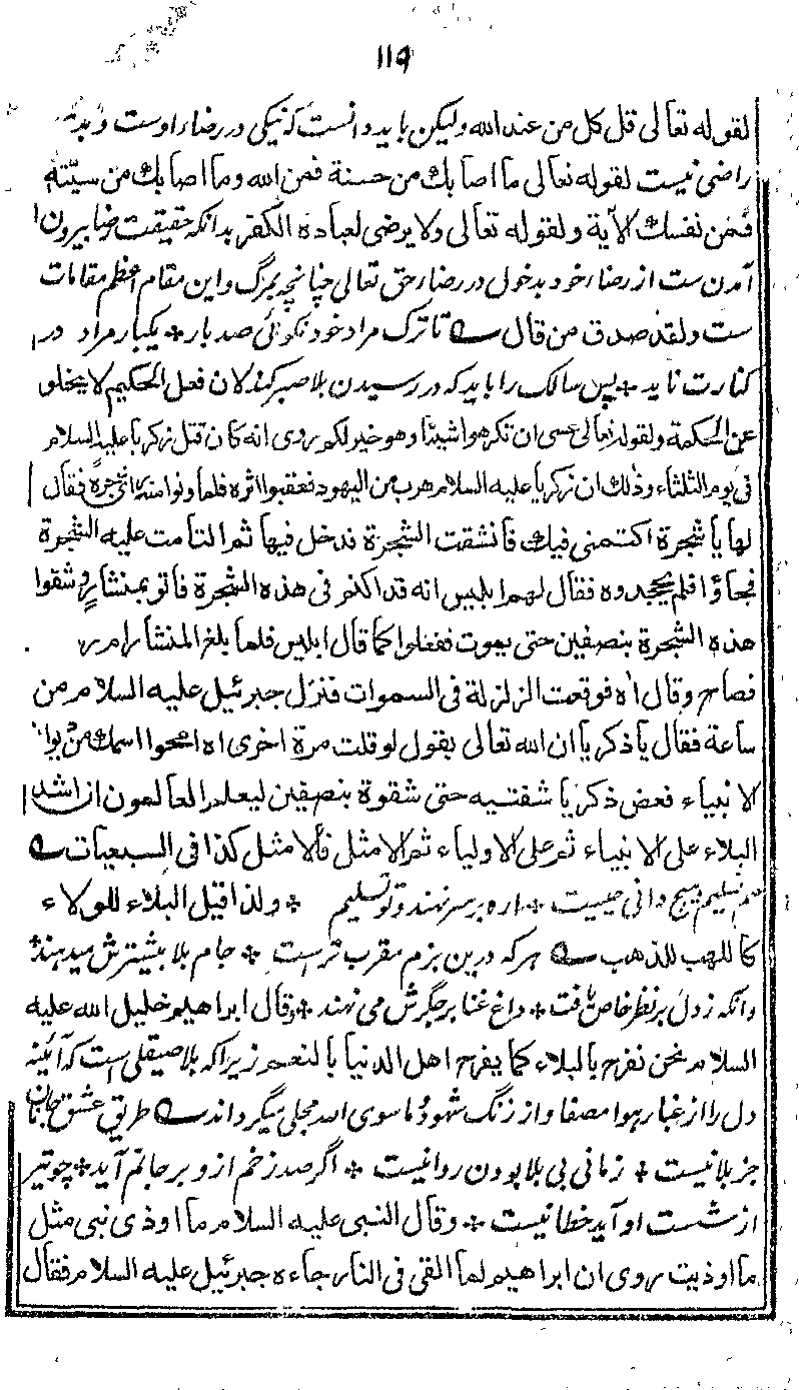 ۱۱۹
لقوله تعالى قل كل من عند الله وليكن بايد دانست كه نيكى در رضاء اوست و بد به
راضى نيست لقوله تعالى ما اصابك من حسنة فمن الله وما اصابك من سيئة
فمن نفسك الآية ولقوله تعالى ولا يرضى لعباده الكفر بدانكه حقيقت رضا بيرون
آمدن ست از رضاء خود بدخول در رضاء حق تعالى چنانچه بمرگ و اين مقام اعظم مقامات
ست ولقد صدق من قال ے تا ترک مراد خود نكوئى صد بار * يكبار مراد در
كنارت نايد * پس سالک را بايد كه در رسيدن بلا صبر كند لان فعل الحكيم لا يخلو
عن الحكمة ولقوله تعالى عسى ان تكرهوا شيئا وهو خير لكم روى انه كان قتل زكريا عليه السلام
فى يوم الثلثاء وذلك ان زكريا عليه السلام هرب من اليهود فعقبوا اثره فلما دنوا منه رأى شجرة فقال
لها يا شجرة اكتمنى فيك فانشقت الشجرة فدخل فيها ثم التامت عليه الشجرة
فجاؤا فلم يجدوه فقال لهم ابليس انه قد اكنم فى هذه الشجرة فاتوا بمنشار وشقوا
هذه الشجرة بنصفين حتى يموت ففعلوا كما قال ابليس فلما بلغ المنشار ام
فصاح وقال اه فوقعت الزلزلة فى السموات فنزل جبرئيل عليه السلام من
ساعة فقال يا ذكريا ان الله تعالى يقول لو قلت مرة اخرى اه امحوا اسمك من
الانبياء فعض ذكريا شفتيه حتى شقوة بنصفين ليعلم العالمون ان اشد
البلاء على الانبياء ثم على الاولياء ثم الامثل فالامثل كذا فى السبعيات ے
تسليم هيچ دانى چيست * اره بر سر نهند و تو تسليم * ولذا قيل البلاء للولاء
كا للهب للذهب ے هر كه درين بزم مقرب ترست * جام بلا بيشترش ميدهند
وانكه ز دلبر نظر خاص يافت * داغ عنا بر جگرش مى نهند * وقال ابراهيم خليل الله عليه
السلام نحن نفرح بالبلاء كما يفرح اهل الدنيا بالنعم زيراكه بلا صيقلى است كه آئينه
دل را از غبار هوا مصفا و از زنگ شهود ما سوى الله مجلى ميگرداند ے طريق عشق جانان
جز بلا نيست * زمانى بى بلا بودن روا نيست * اگر صد زخم از و بر جانم آيد * چو تير
از شست او آيد خطا نيست * وقال النبى عليه السلام ما اوذى نبى مثل
ما اوذيت روى ان ابراهيم لما القى فى النار جاءه جبرئيل عليه السلام فقال